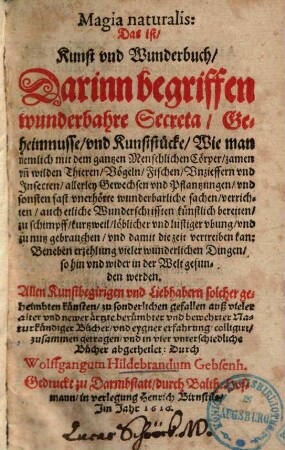 Magia naturalis:
Das ist/
Kunst vnd Wunderbuch/
Darinn begriffen
wunderbahre Secreta/ Ge-
heimnusse/ vnd Kunststücke/ Wie man
nemlich mit dem gantzen Menschlichen Cörper/ zamen
vñ wilden Thieren/ Vögeln/ Fischen/ Vnzieffern vnd
Insecten/ allerley Gewechsen vnd Pflantzungen/ vnd
sonsten fast vnerhörte wunderbarliche sachen/ verrich-
ten/ auch etliche Wunderschrifften künstlich bereiten/
zu schimpff/ kurtzweil/ löblicher vnd lustiger vbung/ vnd
zu nutz gebrauchen/ vnd damit die zeit vertreiben kan:
Beneben erzehlung vieler wunderlichen Dingen/
so hin vnd wider in der Welt gefun-
den werden.
Allen Kunstbegirigen vnd Liebhabern solcher ge-
heimbten Künsten/ zu sonderlichen gefallen auß vieler
alter vnd newer ärtzte berümbter vnd bewehrter Na-
turkündiger Bücher/ vnd eygner erfahrung/ colligirt/
zusammen getragen/ vnd in vier vnterschiedliche
Bücher abgetheilet: Durch
Wolffgangum Hildebrandum Gebsenh.
Gedruckt zu Darmbstatt/ durch Balth. Hof-
mann/ in verlegung Henrich Birnstils/
Im Jahr 1610.
AUGSBURG